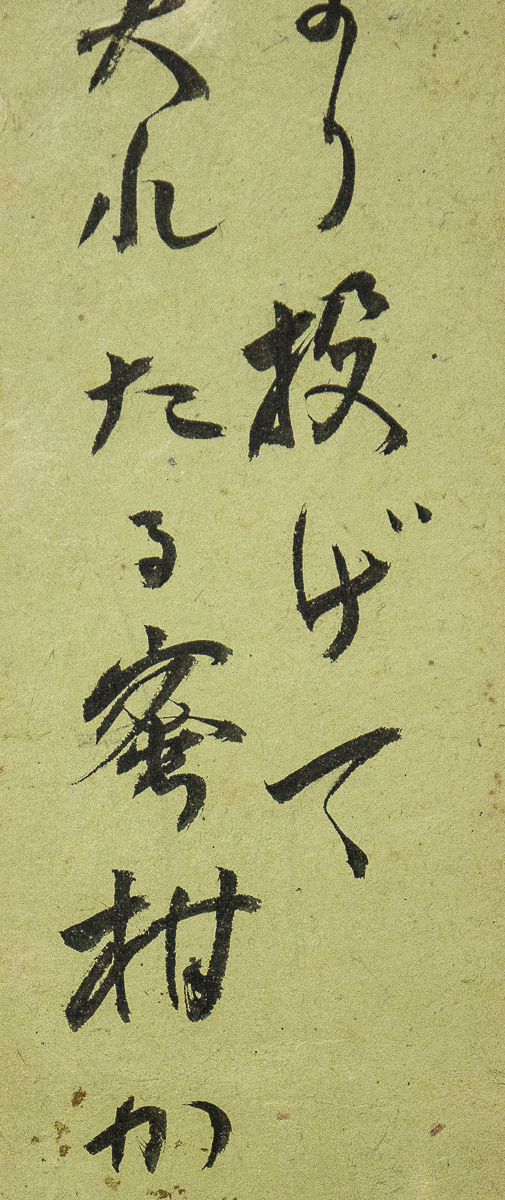 り投げて
れたる蜜柑か